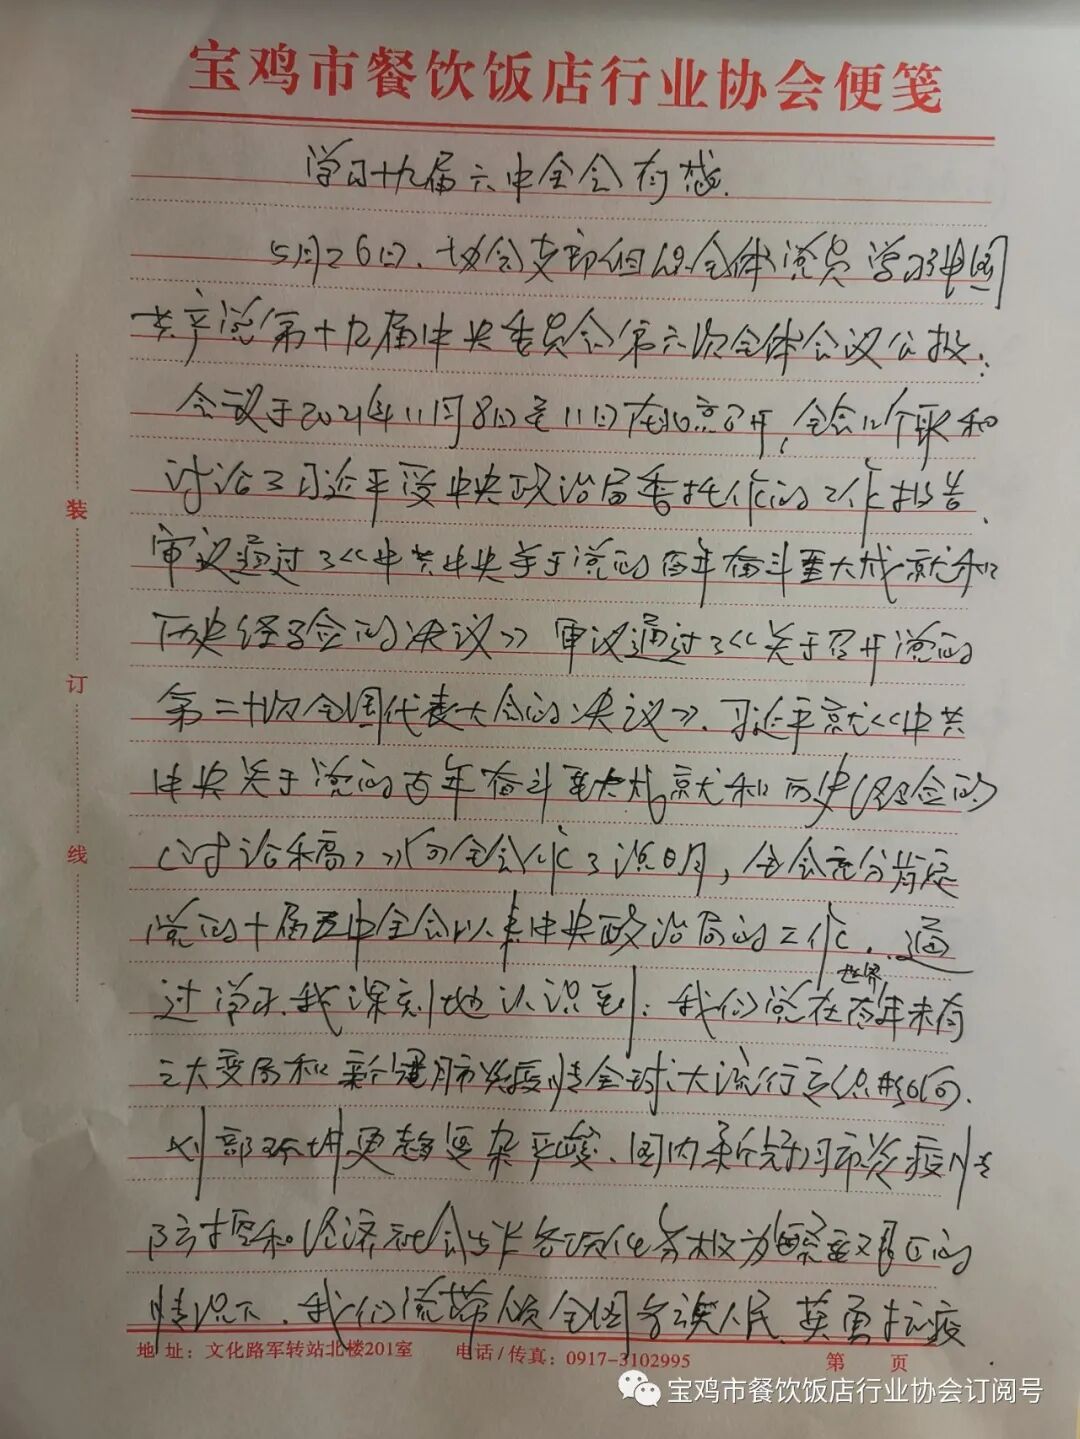 宝鸡市餐饮饭店行业协会便笺
学习十九届六中全会有感.
5月26日、协会支部组织全体党员学习中国
共产党第十九届中央委员会第六次全体会议公报:
会议于2021年11月8日至11日在北京召开,全会听取和
讨论了习近平受中央政治局委托作的工作报告、
审议通过了《中共中央关于党的百年奋斗重大成就和
历史经验的决议》审议通过了《关于召开党的
第二十次全国代表大会的决议》、习近平就《中共
中央关于党的百年奋斗重大成就和历史经验的
(讨论稿)》向全会作了说明,全会充分肯定
党的十届五中全会以来中央政治局的工作.通
过学习、我深刻地认识到:我们党在世界百年未有
之大变局和新冠肺炎疫情全球大流行
外部环境更趋复杂严峻、国内新冠肺炎疫情
防控和经济社会发展各项任务极为繁重艰巨的
情况下、我们党带领全国各族人民、英勇抗疫
装
订
线
地 址：文化路军转站北楼201室 电话/传真：0917-3102995 第 页
宝鸡市餐饮饭店行业协会订阅号